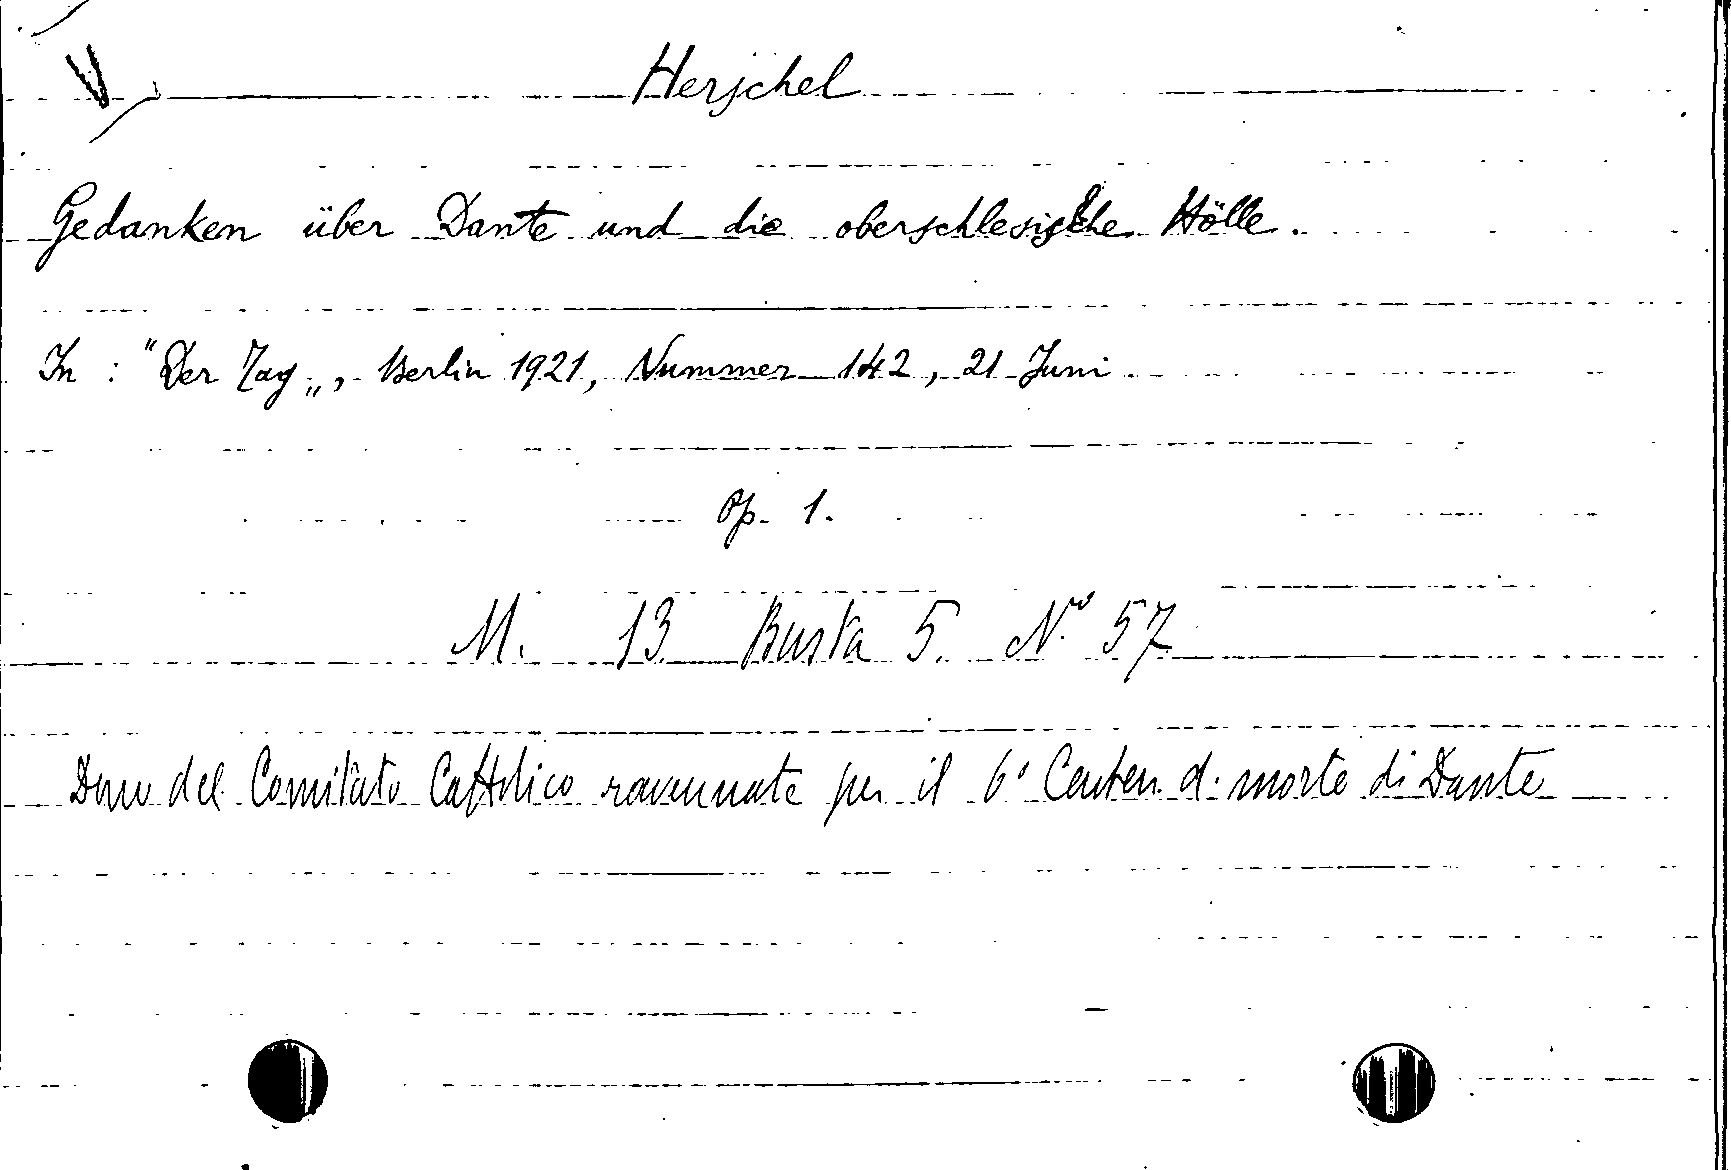 V
Herschel
Gedanken über Dante und die oberschlesische Hölle.
In : "Der Tag„, Berlin 1921, Nummer 142, 21 Juni
Op. 1.
M. 13 Busta 5. No 57
Dono del Comitato Cattolico ravennate per il 6° Centen. d. morte di Dante